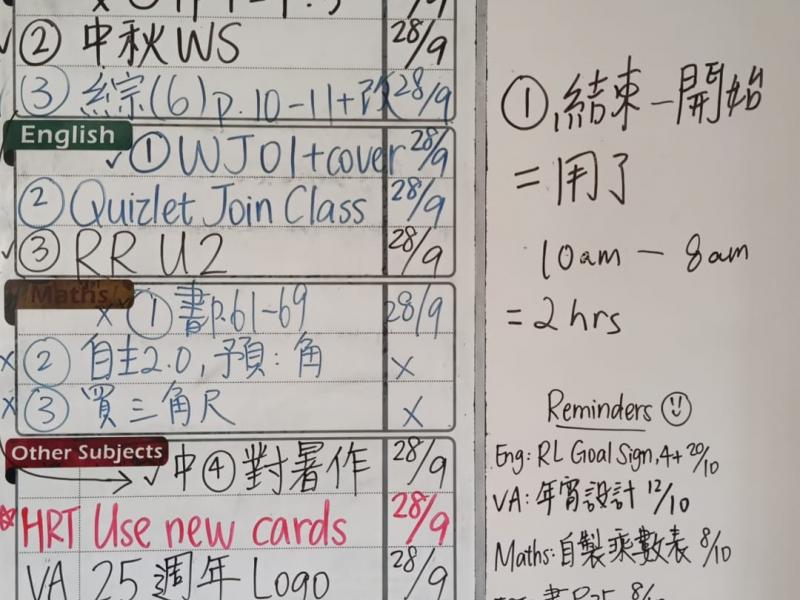 ② 中秋 WS 28/9
③ 綜(6) p.10-11+改 28/9
English
① WJ01+cover 28/9
② Quizlet Join Class 28/9
③ RR U2 28/9
Maths
① 書p.61-69 28/9
② 自主2.0, 預: 角 x
③ 買三角尺 x
Other Subjects
中④對暑作 28/9
HRT Use new cards 28/9
VA 25週年 Logo 28/9
① 結束-開始
= 用了
10am - 8am
= 2 hrs
Reminders
Eng: RL Goal Sign, 4+ 20/10
VA: 年宵設計 12/10
Maths: 自製乘數表 8/10